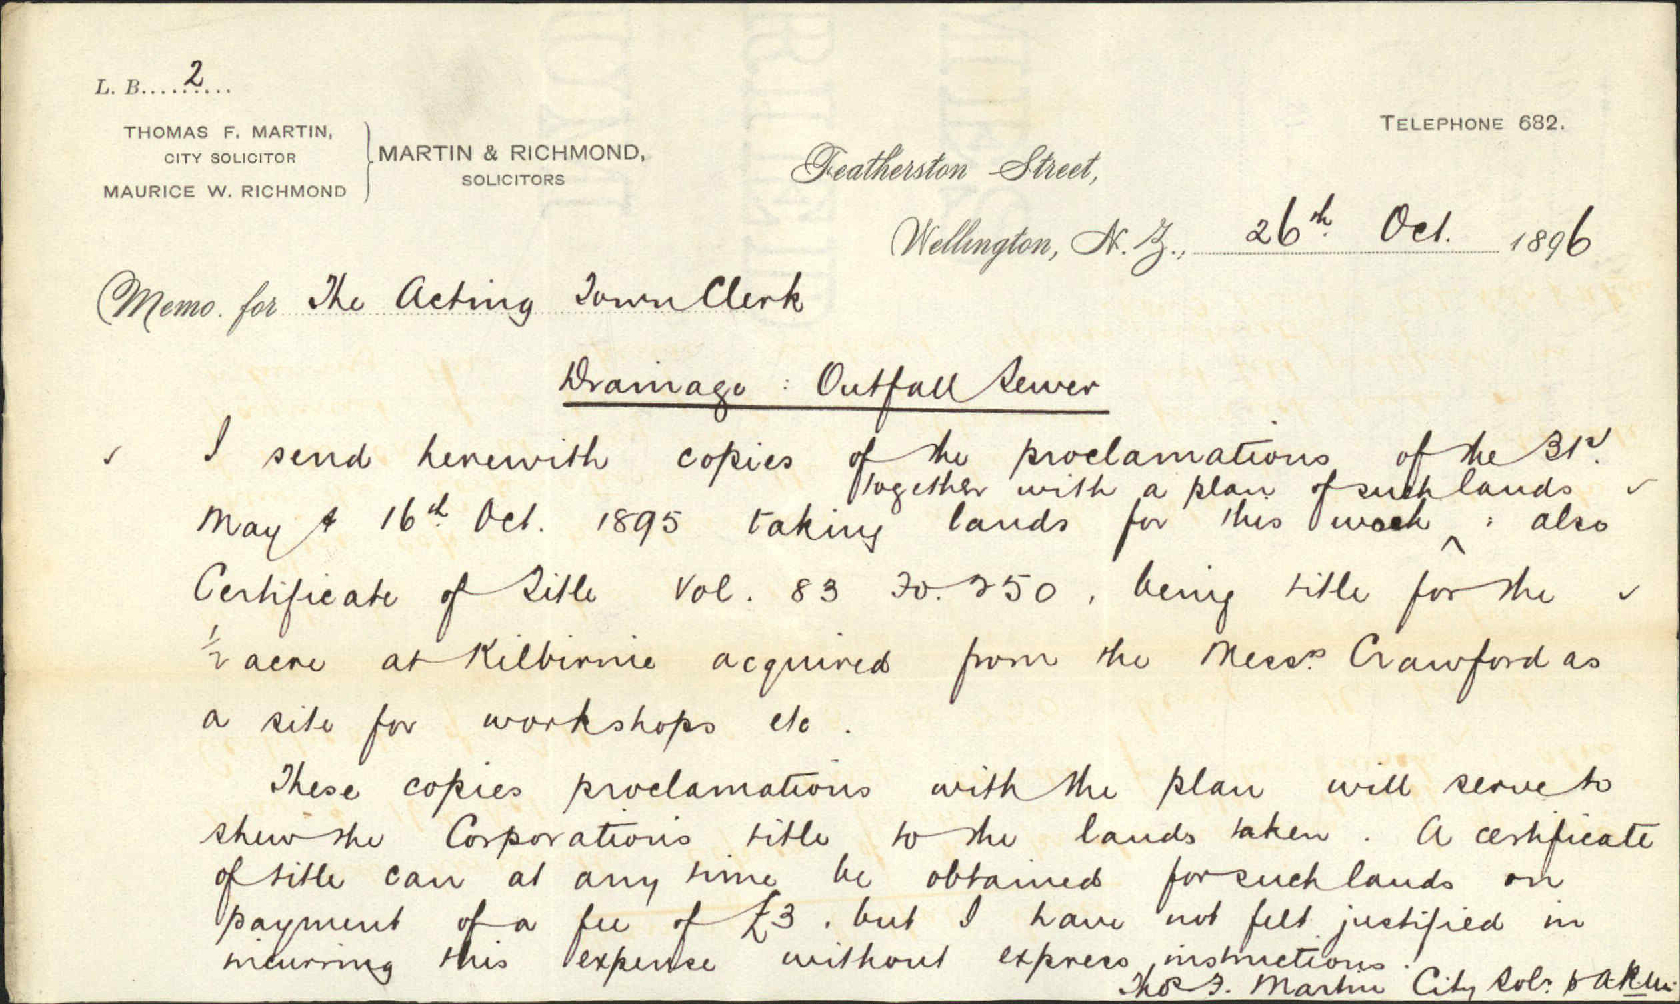 L. B.....2....
THOMAS F. MARTIN,
CITY SOLICITOR
MAURICE W. RICHMOND
MARTIN & RICHMOND,
SOLICITORS
TELEPHONE 682.
Featherston Street,
Wellington, N. Z., 26th Oct. 1896
Memo. for The Acting Town Clerk
Drainage : Outfall Sewer
✓ I send herewith copies of the proclamations of the 31st
together with a plan of such lands ✓
May & 16th Oct. 1895 taking lands for this work ^ : also
Certificate of Title Vol. 83 Fo. 250, being title for the ✓
½ acre at Kilbirnie acquired from the Messrs. Crawford as
a site for workshops etc.
These copies proclamations with the plan will serve to
shew the Corporations title to the lands taken. A certificate
of title can at any time be obtained for such lands on
payment of a fee of £3, but I have not felt justified in
incurring this expense without express instructions.
Thos F. Martin City Solr.